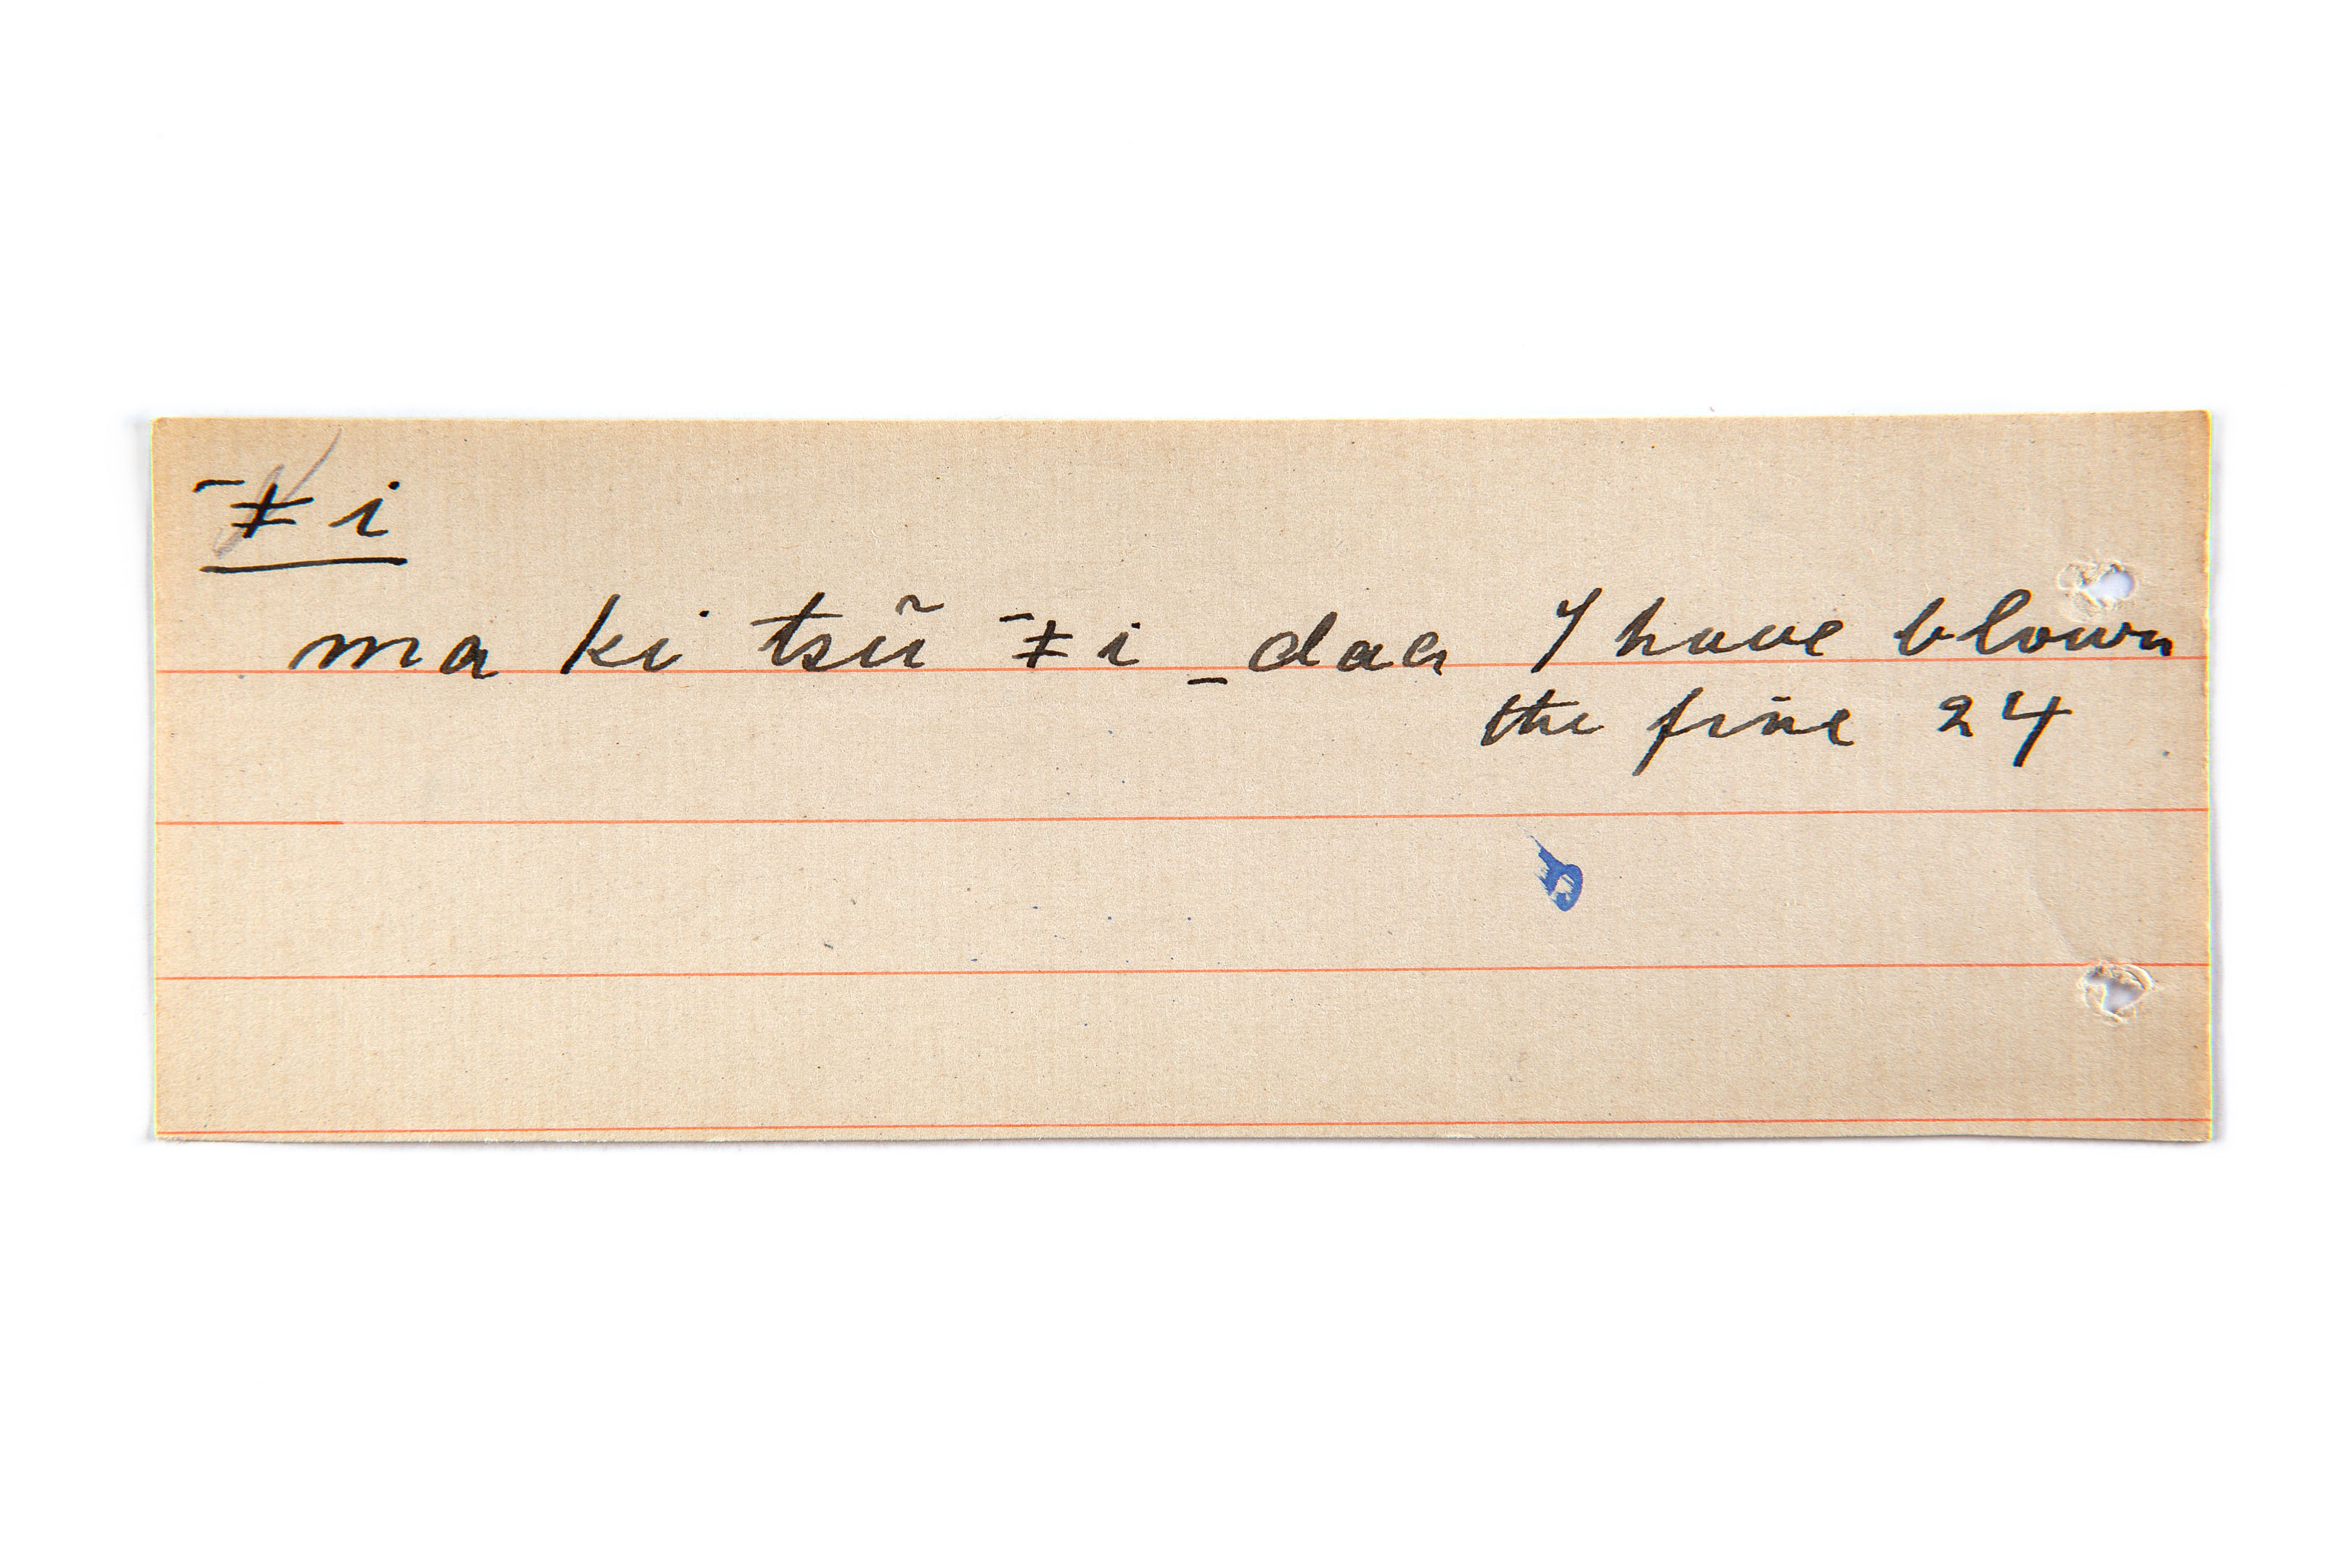 ¯ǂi
ma ki tsũ ¯ǂi _daa I have blown
the fire 24